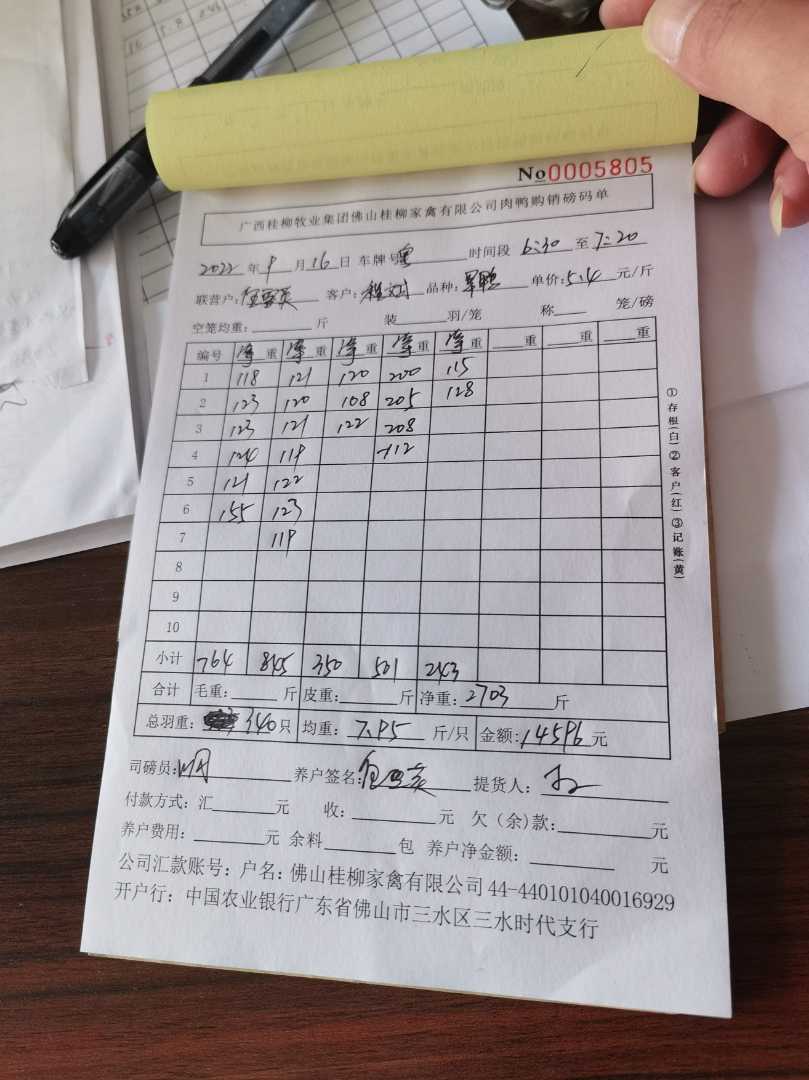 No0005805
广西桂柳牧业集团佛山桂柳家禽有限公司肉鸭购销磅码单
2022年9月16日 车牌号 时间段 6:30 至 7:20
联营户: 客户: 品种: 单价:5.4 元/斤
空笼均重: 斤 装 羽/笼 称 笼/磅
编号 净重 净重 净重 净重 净重 重 重 重
1 118 121 120 200 115
2 123 120 108 205 128
3 123 121 122 208
4 124 119 -112
5 121 122
6 155 123
7 119
8
9
10
小计 764 845 350 501 243
合计 毛重: 斤 皮重: 斤 净重:2703 斤
总羽重: 340只 均重: 7.95 斤/只 金额:14596元
司磅员: 养户签名: 提货人:
付款方式:汇 元 收: 元 欠(余)款: 元
养户费用: 元 余料 包 养户净金额: 元
公司汇款账号:户名:佛山桂柳家禽有限公司 44-440101040016929
开户行:中国农业银行广东省佛山市三水区三水时代支行
①存根(白)②客户(红)③记账(黄)